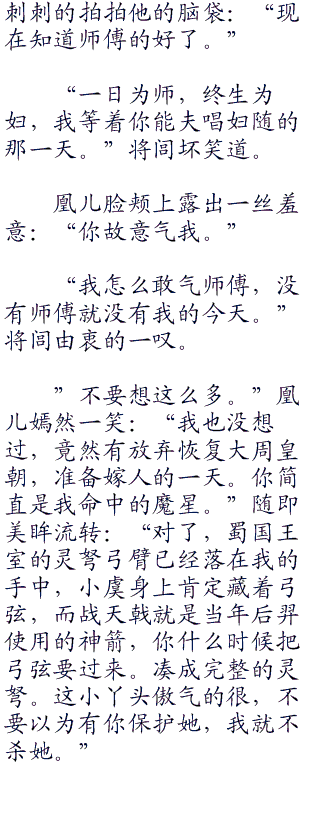 刺刺的拍拍他的脑袋：“现
在知道师傅的好了。”
“一日为师，终生为
妇，我等着你能夫唱妇随的
那一天。”将闾坏笑道。
凰儿脸颊上露出一丝羞
意：“你故意气我。”
“我怎么敢气师傅，没
有师傅就没有我的今天。”
将闾由衷的一叹。
”不要想这么多。”凰
儿嫣然一笑：“我也没想
过，竟然有放弃恢复大周皇
朝，准备嫁人的一天。你简
直是我命中的魔星。”随即
美眸流转：“对了，蜀国王
室的灵弩弓臂已经落在我的
手中，小虞身上肯定藏着弓
弦，而战天戟就是当年后羿
使用的神箭，你什么时候把
弓弦要过来。凑成完整的灵
弩。这小丫头傲气的很，不
要以为有你保护她，我就不
杀她。”